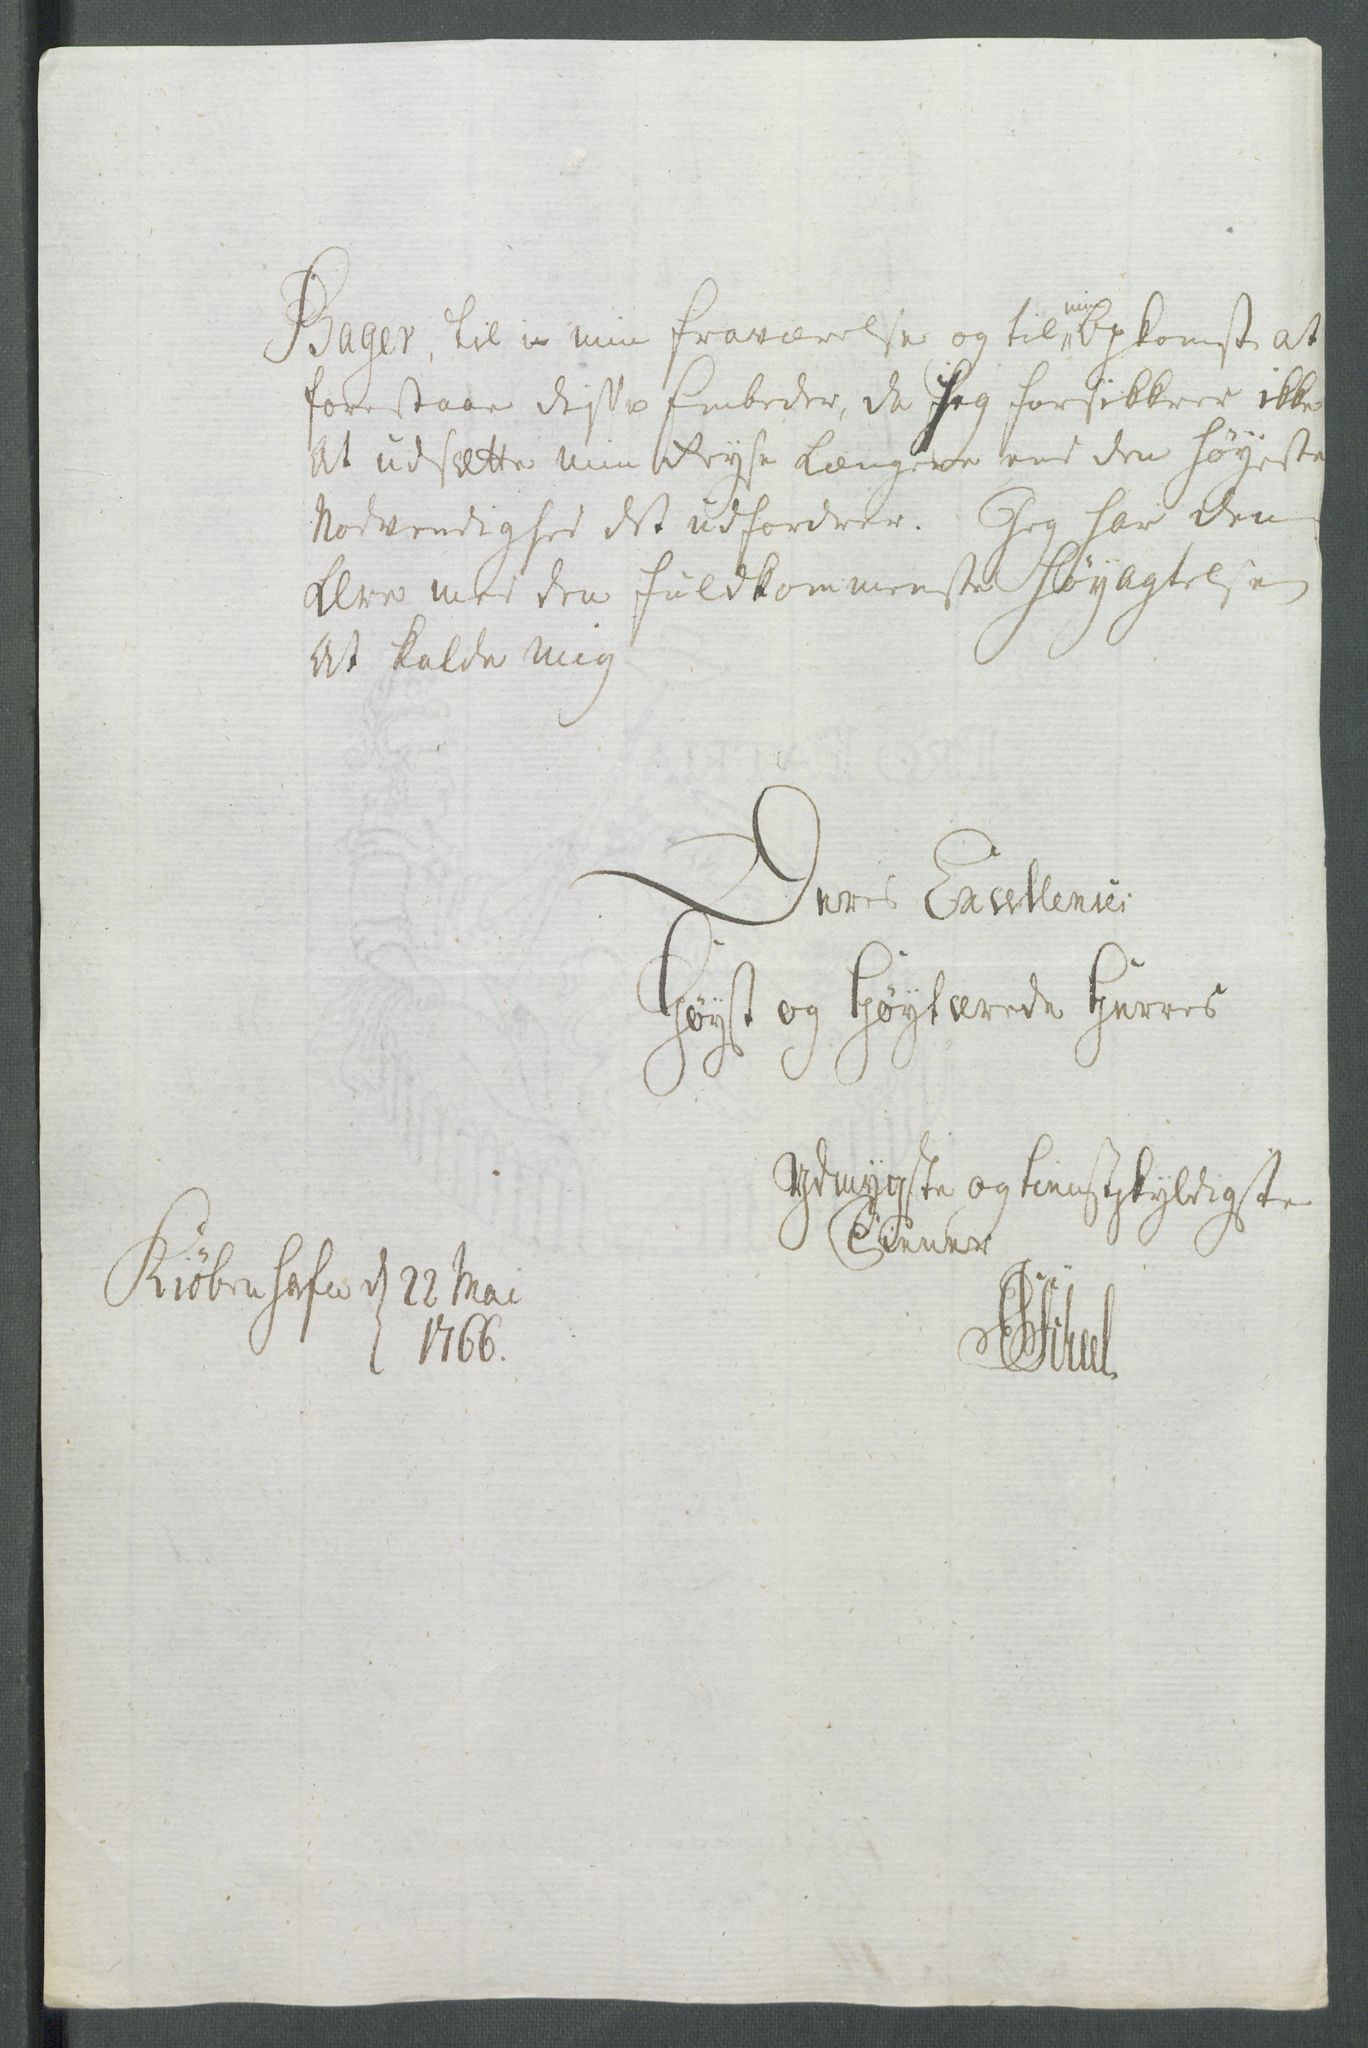 Bager, til i min fraværelse og til min Opkomst at
forestaae disse Embeder, da jeg forsikkrer ikke
at udsætte min Reyse længere end den höyeste
Nødvendighed det udfordrer. Jeg har den
Ære med den fuldkommenste Höyagtelse
at kalde mig
Deres Excellence
Höyst og Höytærede Herres
Ydmygste og tienstskyldigste
Tiener
Kiöbenhafn d 22 Mai
1766.